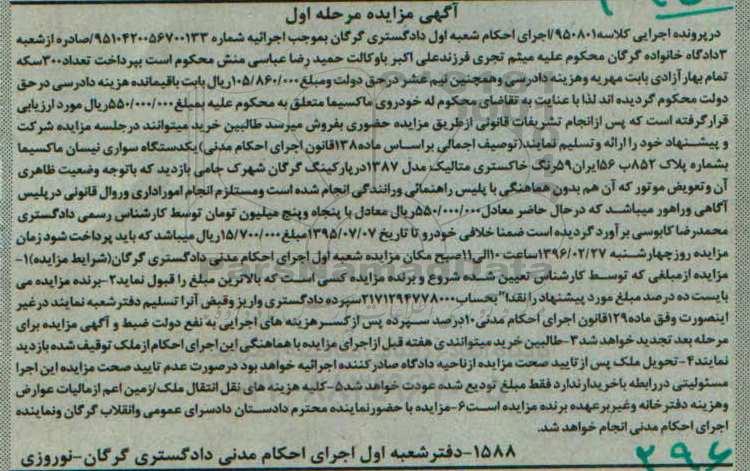 آگهی مزایده مرحله اول
درپرونده اجرایی کلاسه ۹۵۰۸۰۱/اجرای احکام شعبه اول دادگستری گرگان بموجب اجرائیه شماره ۹۵۱۰۴۲۰۰۵۶۷۰۰۱۳۳/صادره از شعبه
۳دادگاه خانواده گرگان محکوم علیه میثم تجری فرزند علی اکبر با وکالت حمید رضا عباسی منش محکوم است بپرداخت تعداد۳۰۰سکه
تمام بهار آزادی بابت مهریه وهزینه دادرسی وهمچنین نیم عشر درحق دولت ومبلغ ۱۰۵/۸۶۰/۰۰۰ریال بابت باقیمانده هزینه دادرسی در حق
دولت محکوم گردیده اند لذا با عنایت به تقاضای محکوم له خودروی ماکسیما متعلق به محکوم علیه بمبلغ ۵۵۰/۰۰۰/۰۰۰ریال مورد ارزیابی
قرار گرفته است که پس ازانجام تشریفات قانونی ازطریق مزایده حضوری بفروش میرسد طالبین خرید میتوانند درجلسه مزایده شرکت
و پیشنهاد خود را ارائه و تسلیم نمایند(توصیف اجمالی براساس ماده۱۳۸قانون اجرای احکام مدنی)یکدستگاه سواری نیسان ماکسیما
بشماره پلاک ۸۵۲ب ۵۶ایران۵۹رنگ خاکستری متالیک مدل ۱۳۸۷درپارکینگ گرگان شهرک جامی بازدید که باتوجه وضعیت ظاهری
آن وتعویض موتور که آن هم بدون هماهنگی با پلیس راهنمائی ورانندگی انجام شده است ومستلزم انجام اموراداری وروال قانونی درپلیس
آگاهی وراهور میباشد که درحال حاضر معادل ۵۵۰/۰۰۰/۰۰۰ریال معادل با پنجاه وپنج میلیون تومان توسط کارشناس رسمی دادگستری
محمدرضا کابوسی برآورد گردیده است ضمنا خلافی خودرو تا تاریخ ۱۳۹۵/۰۷/۰۷مبلغ ۱۵/۷۰۰/۰۰۰ریال میباشد که باید پرداخت شود زمان
مزایده روز چهارشنبه ۱۳۹۶/۰۲/۲۷ساعت ۱۰الی۱۱صبح مکان مزایده شعبه اول اجرای احکام مدنی دادگستری گرگان(شرایط مزایده)۱-
مزایده ازمبلغی که توسط کارشناس تعیین شده شروع و برنده مزایده کسی است که بالاترین مبلغ را قبول نماید۲-برنده مزایده می
بایست ده درصد مبلغ مورد پیشنهاد را نقدا"بحساب۲۱۷۱۲۹۴۷۷۸۰۰۰سپرده دادگستری واریز وقبض آنرا تسلیم دفتر شعبه نمایند درغیر
اینصورت وفق ماده۱۲۹قانون اجرای احکام مدنی ۱۰درصد سپرده پس از کسر هزینه های اجرایی به نفع دولت ضبط و آگهی مزایده برای
مرحله بعد تجدید خواهد شد۳-طالبین خرید میتوانند ی هفته قبل ازاجرای مزایده با هماهنگی این اجرای احکام ازملک توقیف شده بازدید
نمایند۴-تحویل ملک پس از تایید صحت مزایده ازناحیه دادگاه صادر کننده اجرائیه خواهد بود درصورت عدم تایید صحت مزایده این اجرا
مسئولیتی دررابطه باخریدارندارد فقط مبلغ تودیع شده عودت خواهد شد۵-کلیه هزینه های نقل انتقال ملک/زمین اعم ازمالیات عوارض
وهزینه دفتر خانه وغیربرعهده برنده مزایده است۶-مزایده با حضور نماینده محترم دادستان دادسرای عمومی وانقلاب گرگان ونماینده
اجرای احکام مدنی انجام خواهد شد.
۱۵۸۸-دفتر شعبه اول اجرای احکام مدنی دادگستری گرگان-نوروزی
۲۹۶